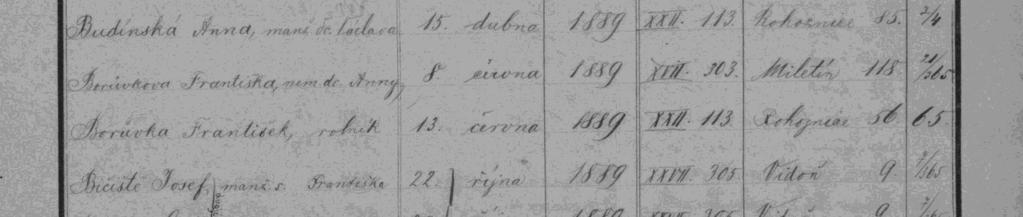 Budínská Anna, manž. dc. Václava 15. dubna 1889 XXII. 113. Rohoznice 85. 2/4
Borůvkova Františka, nem. dc. Anny 8 června 1889 XVII. 303. Miletín 118
Borůvka František, rolník 13. června 1889 XXII. 113 Rohoznice 56. 65
Bičiště Josef, manž. s. Františka 22 října 1889 XXVII. 305 Vidoň 9.
1889 305